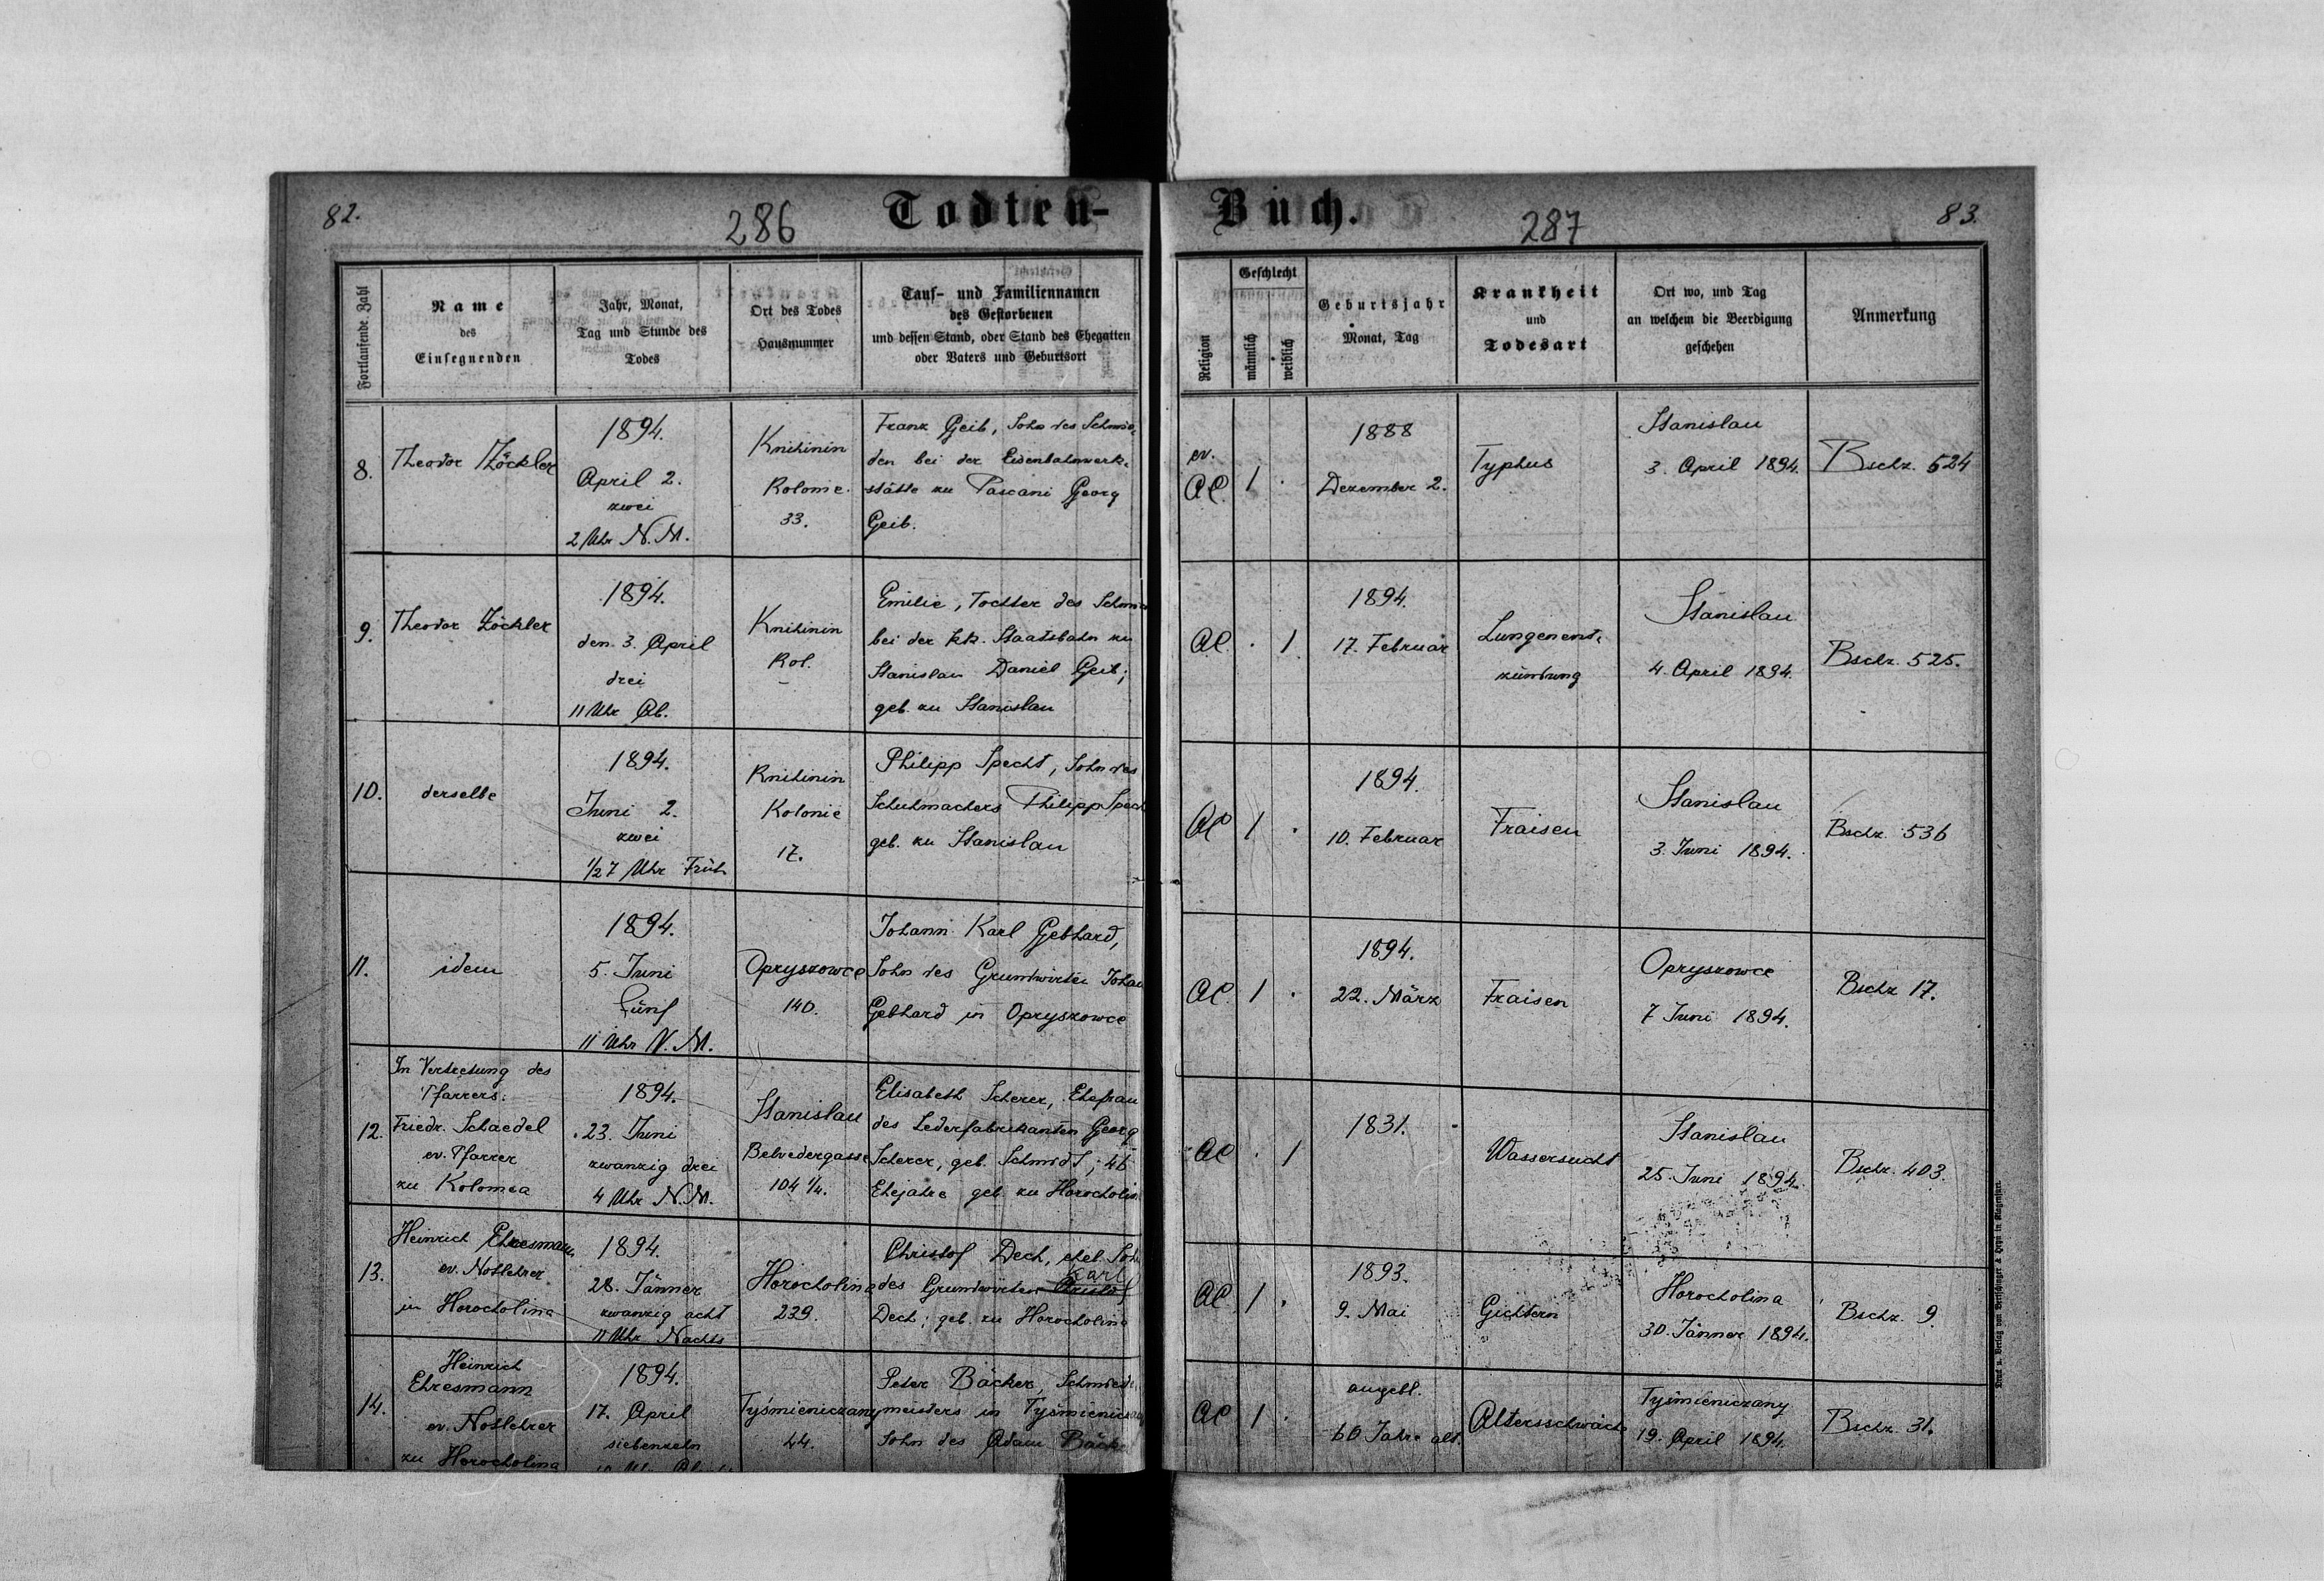 82.
286
Todten-
Buch.
287
83.
Fortlaufende Zahl
Name
des
Einsegnenden
Jahr, Monat,
Tag und Stunde des
Todes
Ort des Todes
Hausnummer
Tauf- und Familiennamen
des Gestorbenen
und dessen Stand, oder Stand des Ehegatten
oder Vaters und Geburtsort
Religion
Geschlecht
männlich
weiblich
Geburtsjahr
Monat, Tag
Krankheit
und
Todesart
Ort wo, und Tag
an welchem die Beerdigung
geschehen
Anmerkung
8.
Theodor Zöckler
1894.
April 2.
zwei
2 Uhr N.M.
Knihinin
Kolonie
33.
Franz Geib, Sohn des Schmie-
den bei der Eisenbahnwerk-
stätte zu Pascani Georg
Geib.
ev.
AC.
1
.
1888
Dezember 2.
Typhus
Stanislau
3. April 1894.
Bschz. 524
9.
Theodor Zöckler
1894.
den 3. April
drei
11 Uhr Ab.
Knihinin
Kol.
Emilie, Tochter des
bei der k.k. Staatsbahn zu
Stanislau Daniel Geib;
geb. zu Stanislau
AC.
.
1
1894.
17. Februar
Lungenent-
zündung
Stanislau
4. April 1894.
Bschz. 525.
10.
derselbe
1894.
Juni 2.
zwei
1/2 7 Uhr Früh
Knihinin
Kolonie
17.
Philipp Specht, Sohn des
Schuhmachers Philipp
geb. zu Stanislau
AC
1
.
1894.
10. Februar
Fraisen
Stanislau
3. Juni 1894.
Bschz. 536
11.
idem
1894.
5. Juni
fünf
11 Uhr V.M.
Opryszowce
140.
Johann Karl Gebhard,
Sohn des Grundwirten
Gebhard in Opryszowce
AC.
1
.
1894.
22. März
Fraisen
Opryszowce
7 Juni 1894.
Bschz 17.
12.
In Vertretung des
Pfarrers:
Friedr. Schaedel
ev. Pfarrer
zu Kolomea
1894.
23. Juni
zwanzig drei
4 Uhr N.M.
Stanislau
Belvedergasse
104 1/4.
Elisabeth Scherer, Ehefrau
des Lederfabrikanten Georg
Scherer, geb. Schmidt; 46
Ehejahre geb. zu
AC
.
1
1831.
Wassersucht
Stanislau
25. Juni 1894.
Bschz. 403.
13.
Heinrich Ehresmann,
ev. Notlehrer
in Horocholina
1894.
28. Jänner
zwanzig acht
11 Uhr Nachts
Horocholina
239.
Christof Dech, ehel.
Karl
des Grundwirten Christof
Dech; geb. zu Horocholina
AC
1
.
1893.
9. Mai
Gichtern
Horocholina
30. Jänner 1894.
Bschz. 9.
14.
Heinrich
Ehresmann
ev. Notlehrer
zu Horocholina
1894.
17. April
siebenzehn
Tyśmieniczany
44.
Peter Bäcker,
meisters in
Sohn des Adam
AC
1
.
angebl.
60 Jahre alt.
Altersschwäche
Tyśmieniczany
19. April 1894.
Bschz. 31.